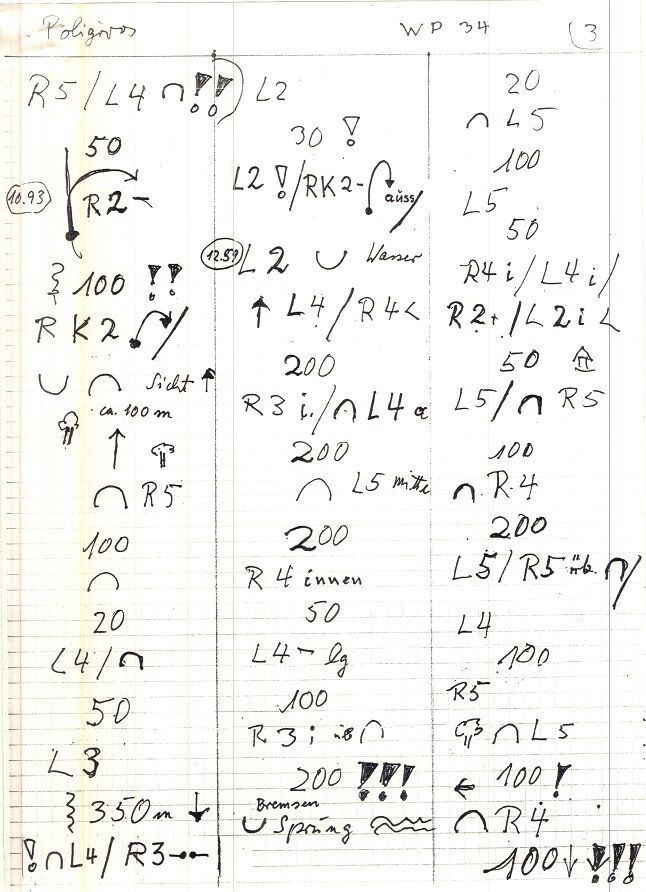 Poligiros WP 34 3
R5 / L4 ∩ !!
50
10.93 R2-
100 !!
R K2 /
∪ ∩ Sicht ↑
ca. 100 m
↑
∩ R5
100
∩
20
L4 / ∩
50
L3
350m ↓
! ∩ L4 / R3
L2
30 !
L2 ! / RK2- auss /
12.59 L2 ∪ Wasser
↑ L4 / R4 <
200
R3 i. / ∩ L4 a
200
∩ L5 mitte
200
R4 innen
50
L4- lg
100
R3 i üb ∩
200 !!!
Bremsen
∪ Sprung
20
∩ L5
100
L5
50
R4 i / L4 i /
R2+ / L2 i <
50
L5 / ∩ R5
100
∩ R4
200
L5 / R5 üb. ∩ /
L4
100
R5
∩ L5
← 100 !
∩ R4
100 ↓ !!!